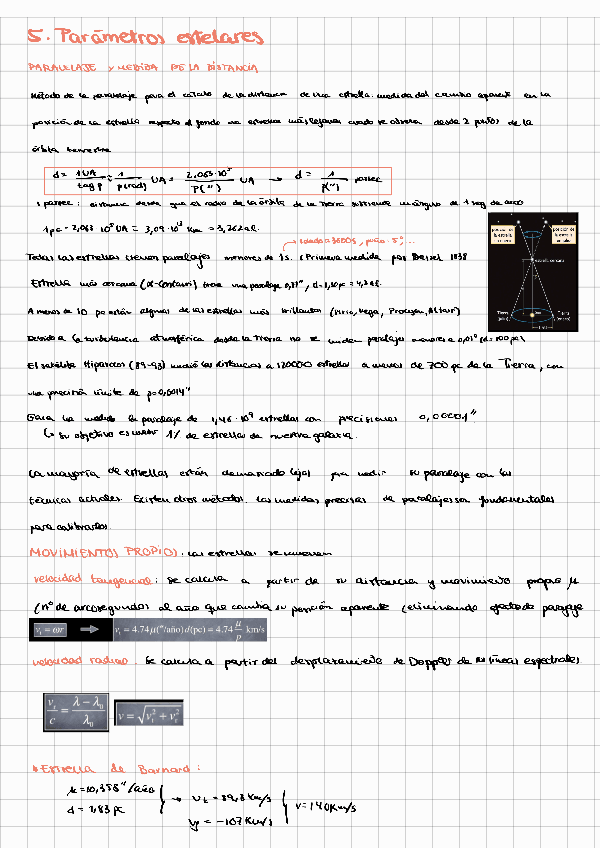 5. Parámetros estelares
PARALLAJE Y MEDIDA DE LA DISTANCIA
Método de la paralaje para el cálculo de la distancia de una estrella: medida del cambio aparente en la
posición de la estrella respecto al fondo de estrellas más lejanas cuando se observa desde 2 puntos de la
órbita terrestre
d = 1 UA / tag p ≈ 1 / p(rad) UA = 2,063·10⁵ / p(") UA → d = 1 / p(") parsec
1 parsec: distancia desde que el radio de la órbita de la Tierra subtiende un ángulo de 1 seg de arco
1 pc = 2,063·10⁵ UA = 3,09·10¹³ km = 3,262 a.l.
1 dado = 3600 s,
Todas las estrellas tienen paralajes menores de 1 s. (Primera medida por Bessel 1838
Estrella más cercana (α-Centauri) tiene una paralaje 0,77", d = 1,30 pc = 4,3 a.l.
A menos de 10 pc están algunas de las estrellas más brillantes (Sirio, Vega, Procyon, Altair)
Debido a la turbulencia atmosférica desde la Tierra no se miden paralajes menores a 0,01" (d = 100 pc)
El satélite Hiparcos (89-93) midió las distancias a 120000 estrellas a menos de 700 pc de la Tierra, con
una precisión límite de p = 0,0014"
Gaia ha medido la paralaje de 1,46·10⁹ estrellas con precisiones 0,00001"
↳ su objetivo es 1% de estrellas de nuestra galaxia.
posición de la estrella en enero
posición de la estrella en julio
estrella cercana
Tierra (julio)
Tierra (enero)
La mayoría de estrellas están demasiado lejos para medir su paralaje con las
técnicas actuales. Existen otros métodos. Las medidas precisas de paralajes son fundamentales
para calibrarlos.
MOVIMIENTOS PROPIOS: las estrellas se mueven
velocidad tangencial: se calcula a partir de su distancia y movimiento propio μ
(nº de arcosegundos al año que cambia su posición aparente (eliminando efecto de paralaje
vₜ = ωr → vₜ = 4.74 μ("/año) d(pc) = 4.74 μ/p km/s
velocidad radial. Se calcula a partir del desplazamiento de Doppler de las líneas espectrales
vᵣ/c = (λ − λ₀)/λ₀ v = √(vᵣ² + vₜ²)
Estrella de Barnard:
μ = 10,358"/año
d = 1,83 pc
→ vₜ = 89,8 km/s
vᵣ = −107 km/s
v = 140 km/s